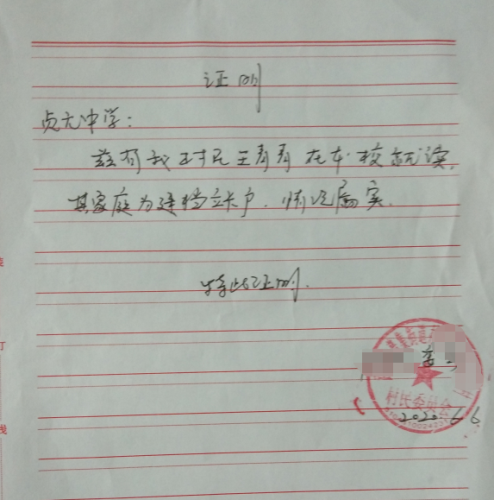 证明
贞元中学：
兹有我村民王青青在本校就读，
其家庭为建档立卡户.情况属实.
特此证明.
村民委员会
2020.6.6